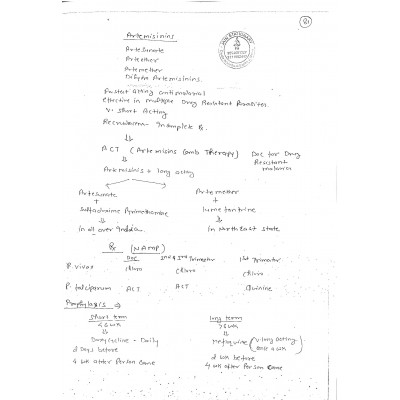 81
Artemisinins
Artesunate
Arteether
Artemether
Dihydro Artemisinins.
Fastest Acting antimalarial
effective in multiple Drug Resistant Parasites.
V. Short Acting
Recrudescence - Incomplete Rx.
⇓
ACT (Artemisinins comb Therapy) Doc for Drug
Resistant
malaria
⇓
Artemisinis + long acting
Artesunate Artemether
+ +
Sulfadoxime Pyrimethamine lumefantrine
⇓ ⇓
In all over India. In North East state
Rx (NAMP)
Doc 2nd & 3rd Trimester 1st Trimester
P. vivax Chloro Chloro Chloro
P. falciparum ACT ACT Quinine
Prophylaxis →
Short term long term
<6 wk >6 wk
⇓ ⇓
Doxycycline - Daily Mefloquine (V. long Acting
2 Days before 2 wk before
4 wk after Person Came 4 wk after Person Came